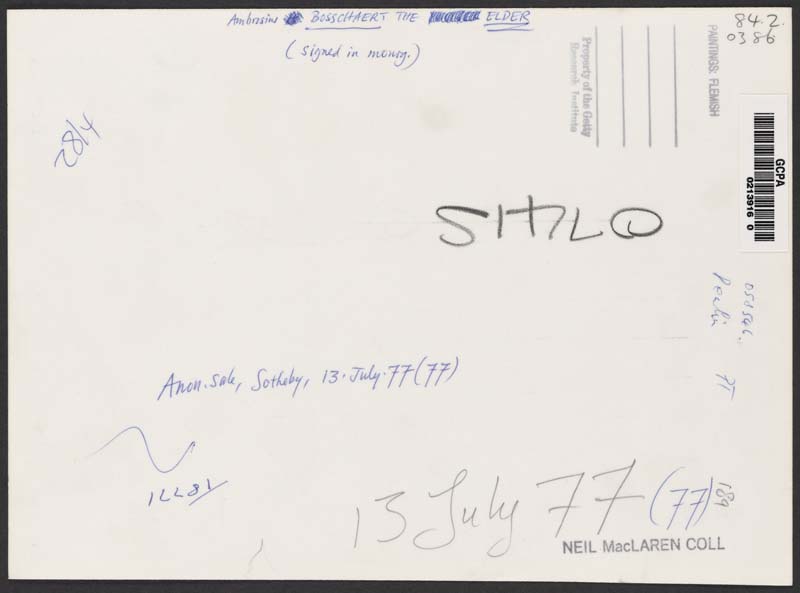 Ambrosius BOSSCHAERT THE ELDER
(signed in monog.)
84.2.
0386
PAINTINGS: FLEMISH
Property of the Getty
Research Institute
GCPA
0213916 0
4/82
Anon. sale, Sotheby, 13. July. 77 (77)
13 July 77 (77)
189
NEIL MacLAREN COLL